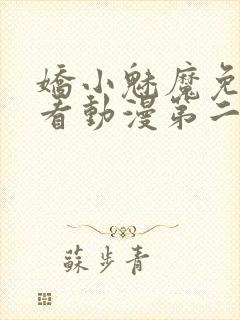 嬌小魅魔免
看動漫第二
蘇步青